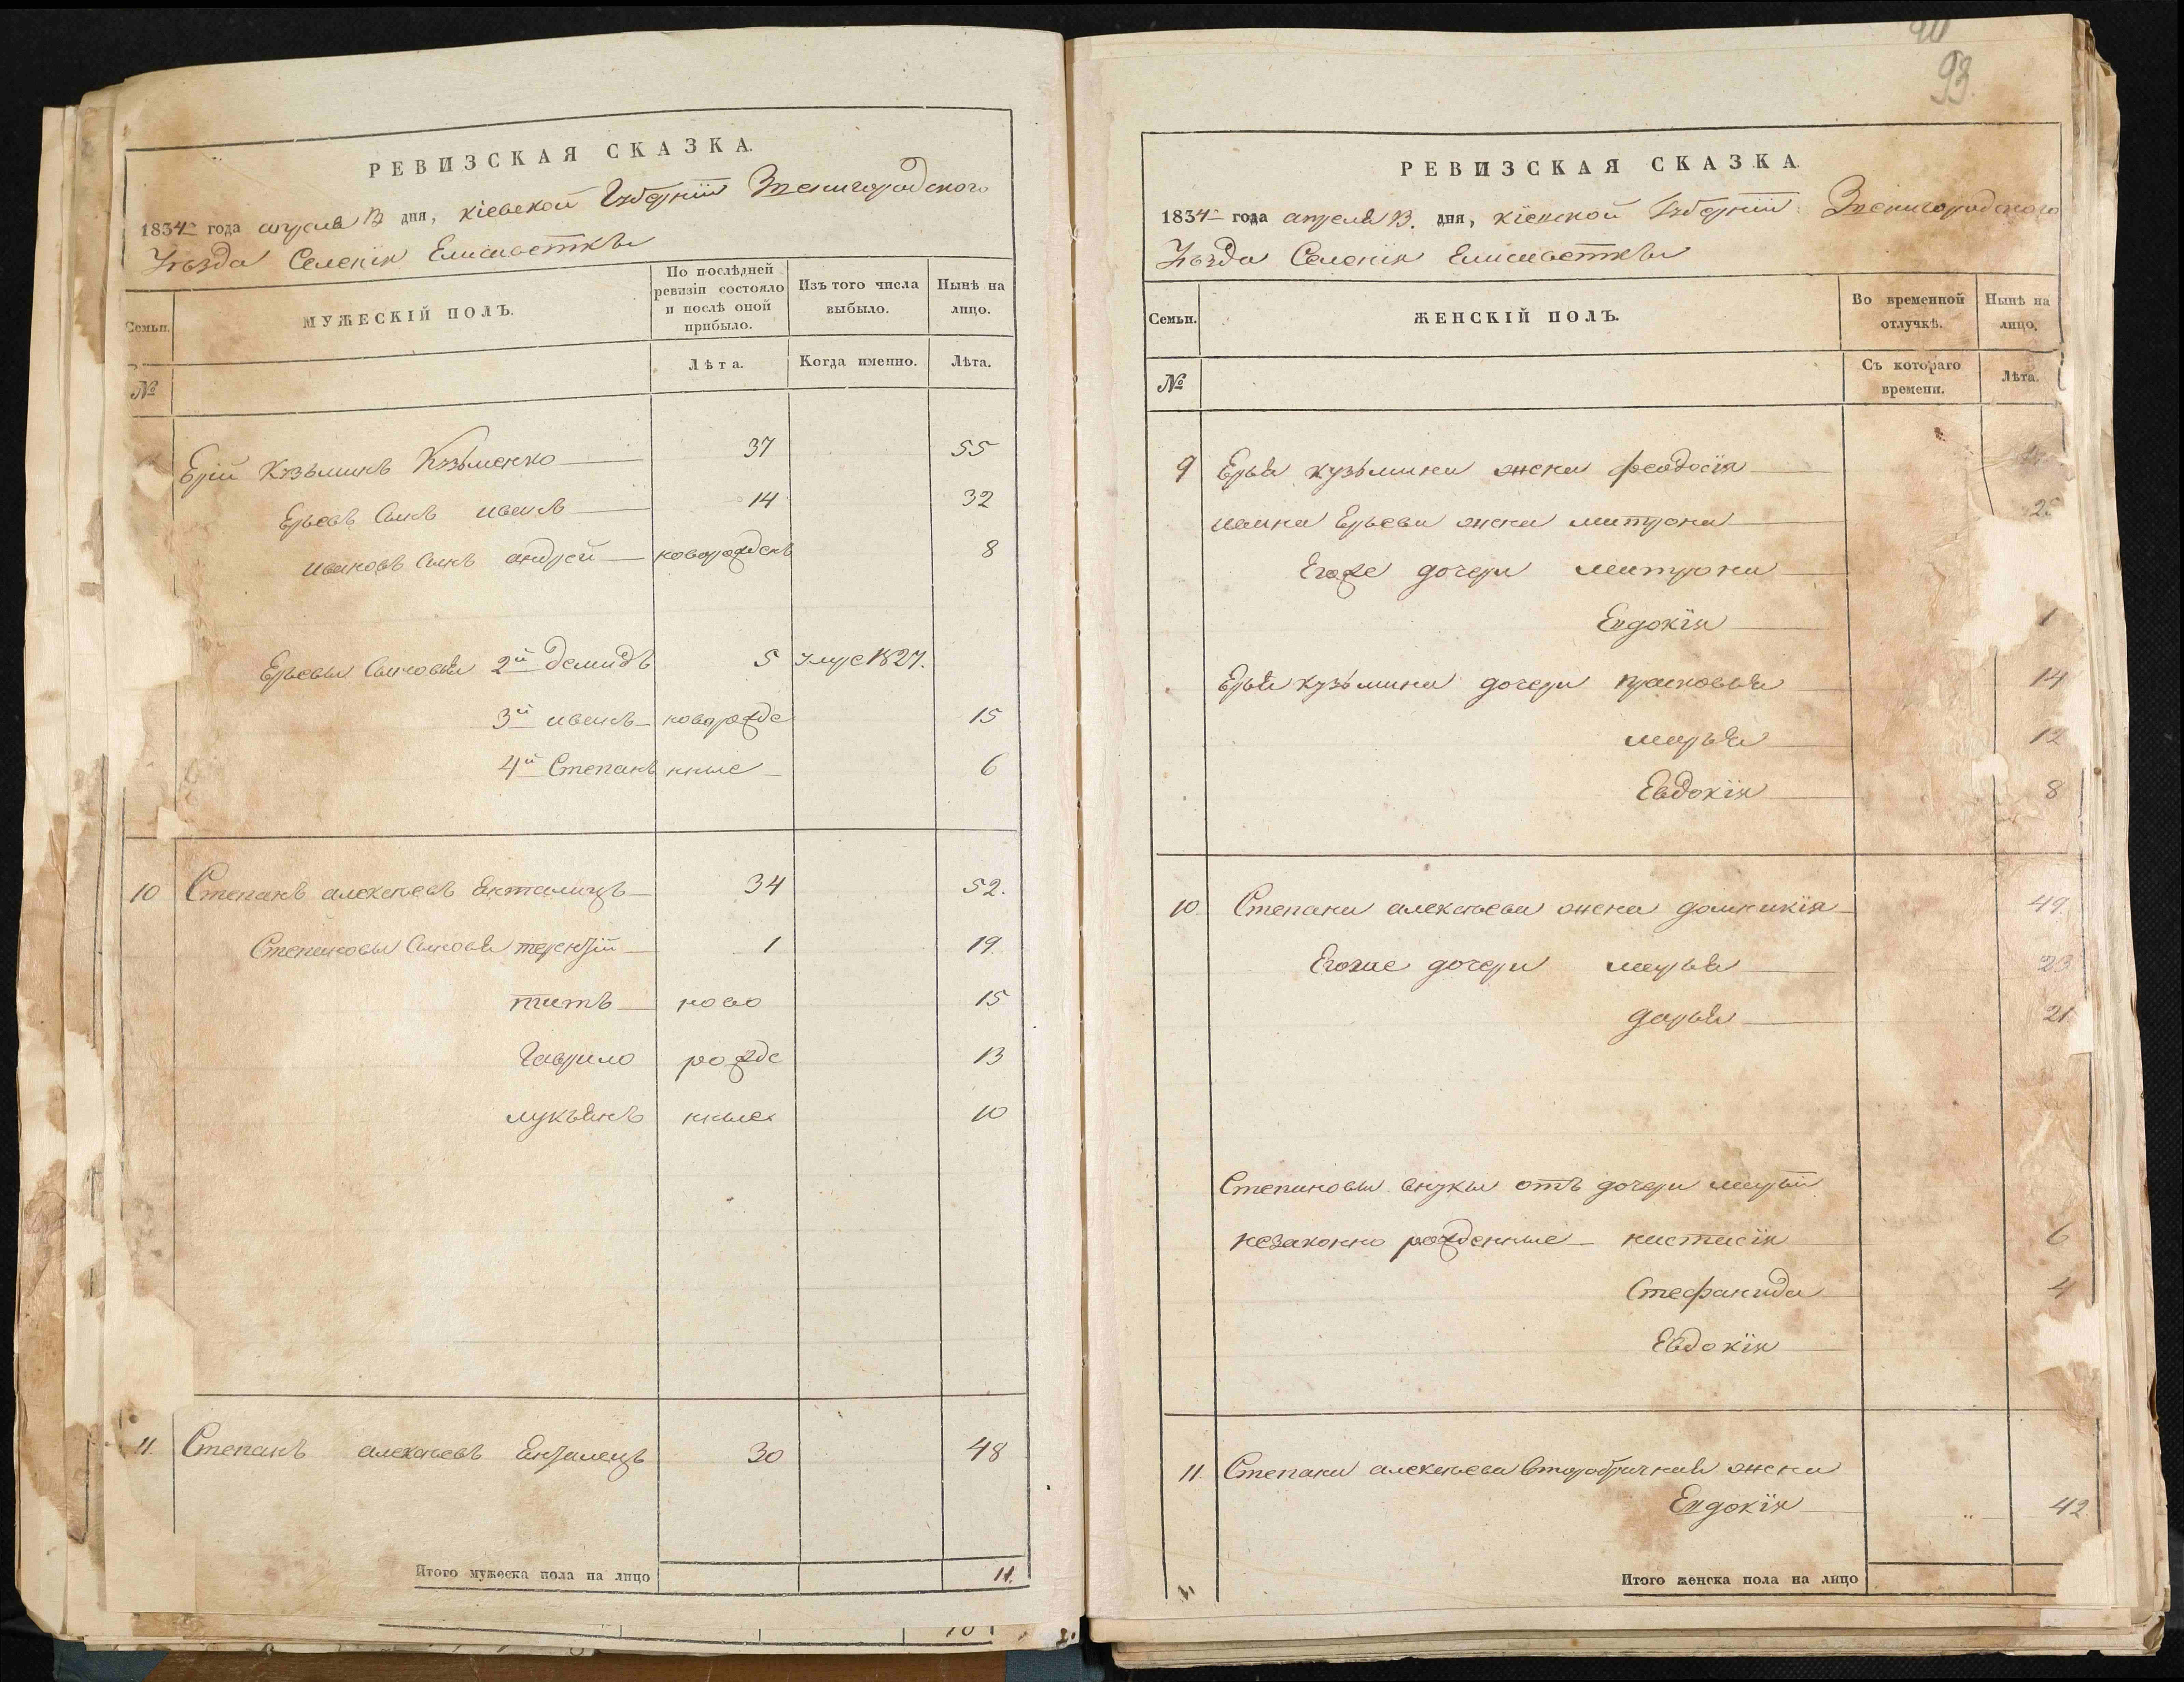 РЕВИЗСКАЯ СКАЗКА.
1834го года апреля 13 дня, Кіевской Губерніи Звенигородского
Уѣзда Селенія Елисаветки
Семьи.
МУЖЕСКІЙ ПОЛЪ.
По послѣдней ревизіи состояло и послѣ оной прибыло.
Изъ того числа выбыло.
Нынѣ на лицо.
№
Лѣта.
Когда именно.
Лѣта.
Ерій Кузьминъ Кузьменко 37 55
Ерьевъ Сынъ иванъ 14 32
ивановъ Сынъ андрей новорожденъ 8
Ерьевы Сыновья 2й демидъ 5 умре 1827.
3й иванъ новорожде 15
4й Степанъ нные 6
10 Степанъ алексѣевъ 34 52.
Степановы Сыновья терентій 1 19.
титъ ново 15
Гаврило рожде 13
лукьянъ нные 10
11. Степанъ алексѣевъ 30 48
Итого мужеска пола на лицо 11.
90
93.
РЕВИЗСКАЯ СКАЗКА.
1834го года апреля 13. дня, Кіевской Губерніи Звенигородского
Уѣзда Селенія Елисаветки
Семьи.
ЖЕНСКІЙ ПОЛЪ.
Во временной отлучкѣ.
Нынѣ на лицо.
№
Съ котораго времени.
Лѣта.
9 Ерья кузьмина жена феодосія
ивана Ерьева жена матрона 25
Егоже дочери матрона
Евдокія 1
Ерья кузьмина дочери прасковья 14
марья 12
Евдокія 8
10 Степана алексѣева жена домникія 49.
Егоже дочери марья 23
дарья 21.
Степановы внуки отъ дочери марьи
незаконно рожденные настасія 6
Стефанида 4
Евдокія
11. Степана алексѣева Второбрачная жена
Евдокія 42.
Итого женска пола на лицо